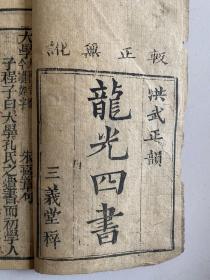 較正無訛
洪武正韻
龍光四書
三義堂梓
大學
朱熹章句
子程子曰大學孔氏之遺書而初學入